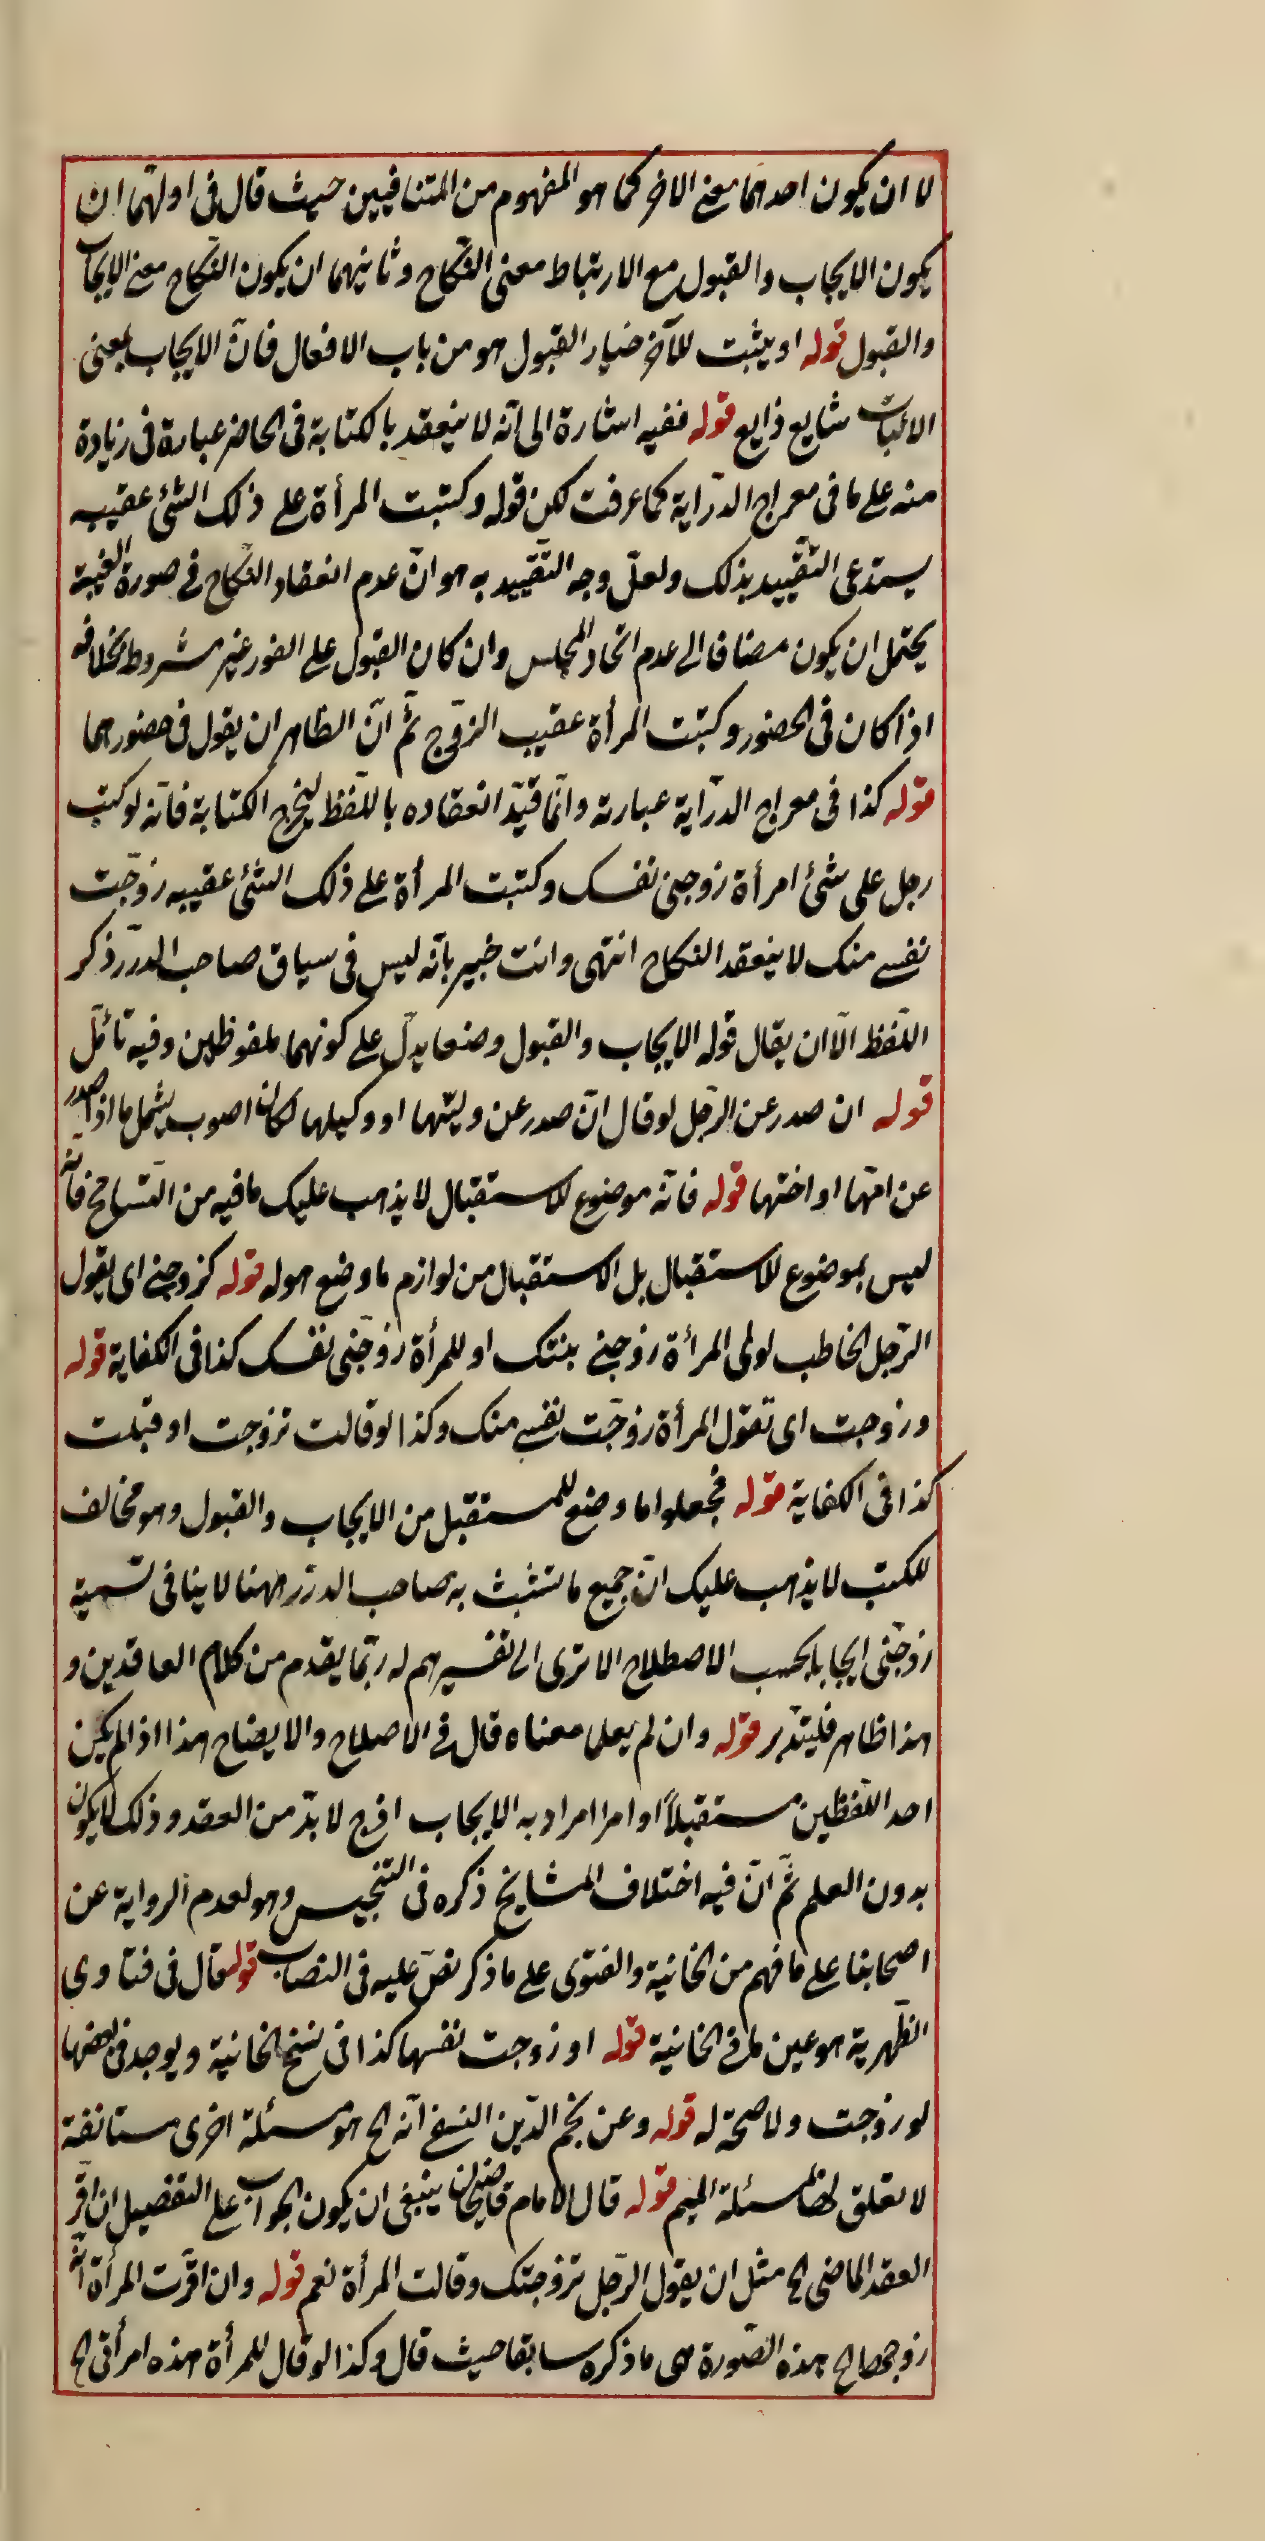 لا ان يكون احدهما معنى الاخر كما هو المفهوم من المتنافيين حيث قال فى اولهما ان
يكون الايجاب والقبول مع الارتباط معنى النكاح وثانيهما ان يكون النكاح معنى الايجاب
والقبول قوله او يثبت للآخر خيار القبول هو من باب الافعال فانّ الايجاب بمعنى
الاثبات شايع ذايع قوله ففيه اشارة الى انّه لا ينعقد بالكتابة فى الحاضر عبارة فى زيادة
منه على ما فى معراج الدّراية كما عرفت لكن قوله وكتبت المرأة على ذلك الشئ عقيبه
يستدعى التّقييد بذلك ولعلّ وجه التّقييد به هو انّ عدم انعقاد النّكاح فى صورة الغيبة
يحتمل ان يكون مضافا الى عدم اتحاد المجلس وان كان القبول على الفور غير مشروط بخلافه
اذا كان فى الحضور وكتبت المرأة عقيب الزّوج ثمّ انّ الظاهر ان يقول فى حضورهما
قوله كذا فى معراج الدّراية عبارته وانّما قيّد انعقاده باللّفظ ليخرج الكتابة فانّه لو كتب
رجل على شئ امرأة زوجنى نفسك وكتبت المرأة على ذلك الشئ عقيبه زوّجت
نفسى منك لا ينعقد النكاح انتهى وانت خبير بانّه ليس فى سياق صاحب الدرر ذكر
اللّفظ الّا ان يقال قوله الايجاب والقبول وضعا يدلّ على كونهما ملفوظين وفيه تأمّل
قوله ان صدر عن الرّجل لو قال انّ صدر عن وليّهما او وكيلهما لكان اصوب يشمل ما اذا صدر
عن امّها او اختها قوله فانّه موضوع للاستقبال لا يذهب عليك ما فيه من التّسامح فانّه
ليس بموضوع للاستقبال بل الاستقبال من لوازم ما وضع هو له قوله كزوجنى اى يقول
الرّجل الخاطب لولى المرأة زوجنى بنتك او للمرأة زوّجنى نفسك كذا فى الكفاية قوله
وزوجت اى تقول المرأة زوّجت نفسى منك وكذا لو قالت تزوجت او قبلت
كذا فى الكفاية قوله فجعلوا ما وضع للمستقبل من الايجاب والقبول وهو مخالف
للكتب لا يذهب عليك انّ جميع ما تشبث به صاحب الدرر ههنا لا ينافى تسميته
زوجّنى ايجابا بحسب الاصطلاح الا ترى الى تفسيرهم له ربّما يقدم من كلام العاقدين و
هذا ظاهر فليتدّبر قوله وان لم يعلما معناه قال فى الاصلاح والايضاح هذا اذا لم يكن
احد اللّفظين مستقبلاً او امرا مراد به الايجاب اذ ح لا بدّ من العقد وذلك لا يكون
بدون العلم ثمّ انّ فيه اختلاف المشايخ ذكره فى التّنجيس وهو لعدم الرواية عن
اصحابنا على ما فهم من الخانية والفتوى على ما ذكر نصّ عليه فى النصاب قوله قال فى فتاوى
الظّهرية هو عين ما فى الخانية قوله او زوجت نفسها كذا فى نسخ الخانية ويوجد فى بعضها
لو زوجت ولا صحّة له قوله وعن نجم الدّين النسفى انّه الخ هو مسئلة اخرى مستانفة
لا تعلق لها لمسئلة الميم قوله قال الامام قاضيخان ينبغى ان يكون الجواب على التفصيل ان اقرّ
العقد الماضى الخ مثل ان يقول الرّجل تزوجتك وقالت المرأة نعم قوله وان اقرّت المرأة انّه
زوجها الخ هذه الصّورة هى ما ذكره سابقا حيث قال وكذا لو قال للمرأة هذه امرأتى الخ